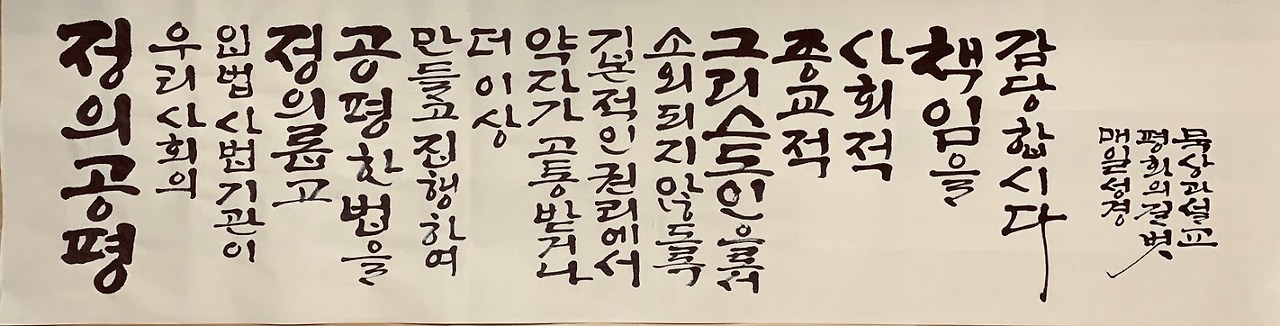 정의공평
우리사회의
입법사법기관이
정의롭고
공평한법을
만들고집행하여
더이상
약자가고통받거나
기본적인권리에서
소외되지않도록
그리스도인으로서
종교적
사회적
책임을
감당합시다
매일성경
평화의길벗
묵상과설교